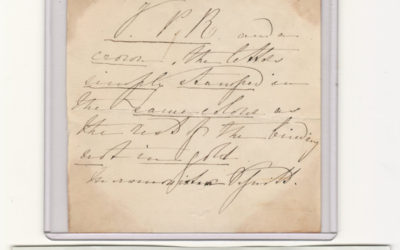 V. P. R. and a
crown, the letters
simply stamped in
the same colour as
the rest of the binding
not in gold